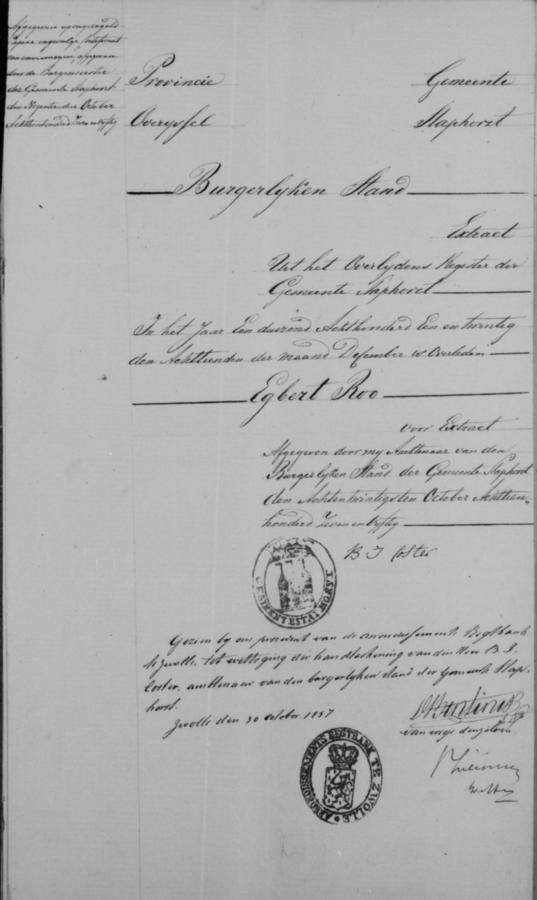 Afgegeven op ongezegeld
Papier ingevolge Certificaat
van onvermogen afgegeven
door de Burgemeester
der Gemeente Staphorst
den Negentienden October
Achttienhonderd Zeven en vyftig
Provincie Gemeente
Overyssel Staphorst
Burgerlyken Stand
Extract
Uit het Overlydens Register der
Gemeente Staphorst
In het Jaar Een duizend Achthonderd Een en twintig
den Achttienden der maand December is Overleden
Egbert Roo
voor Extract
Afgegeven door my Ambtenaar van den
Burgerlyken Stand der Gemeente Staphorst
den Achtentwintigsten October Achttien-
honderd Zeven en vyftig
B J Coster
GEMEENTE STAPHORST
Gezien by ons president van de arrondissements Regtbank
te Zwolle, tot wettiging der handteekening van den Heer B. J.
Coster, ambtenaar van den burgerlyken stand der Gemeente Stap-
horst.
Zwolle den 30 October 1857
van wege denzelven
ARRONDISSEMENTS REGTBANK TE ZWOLLE